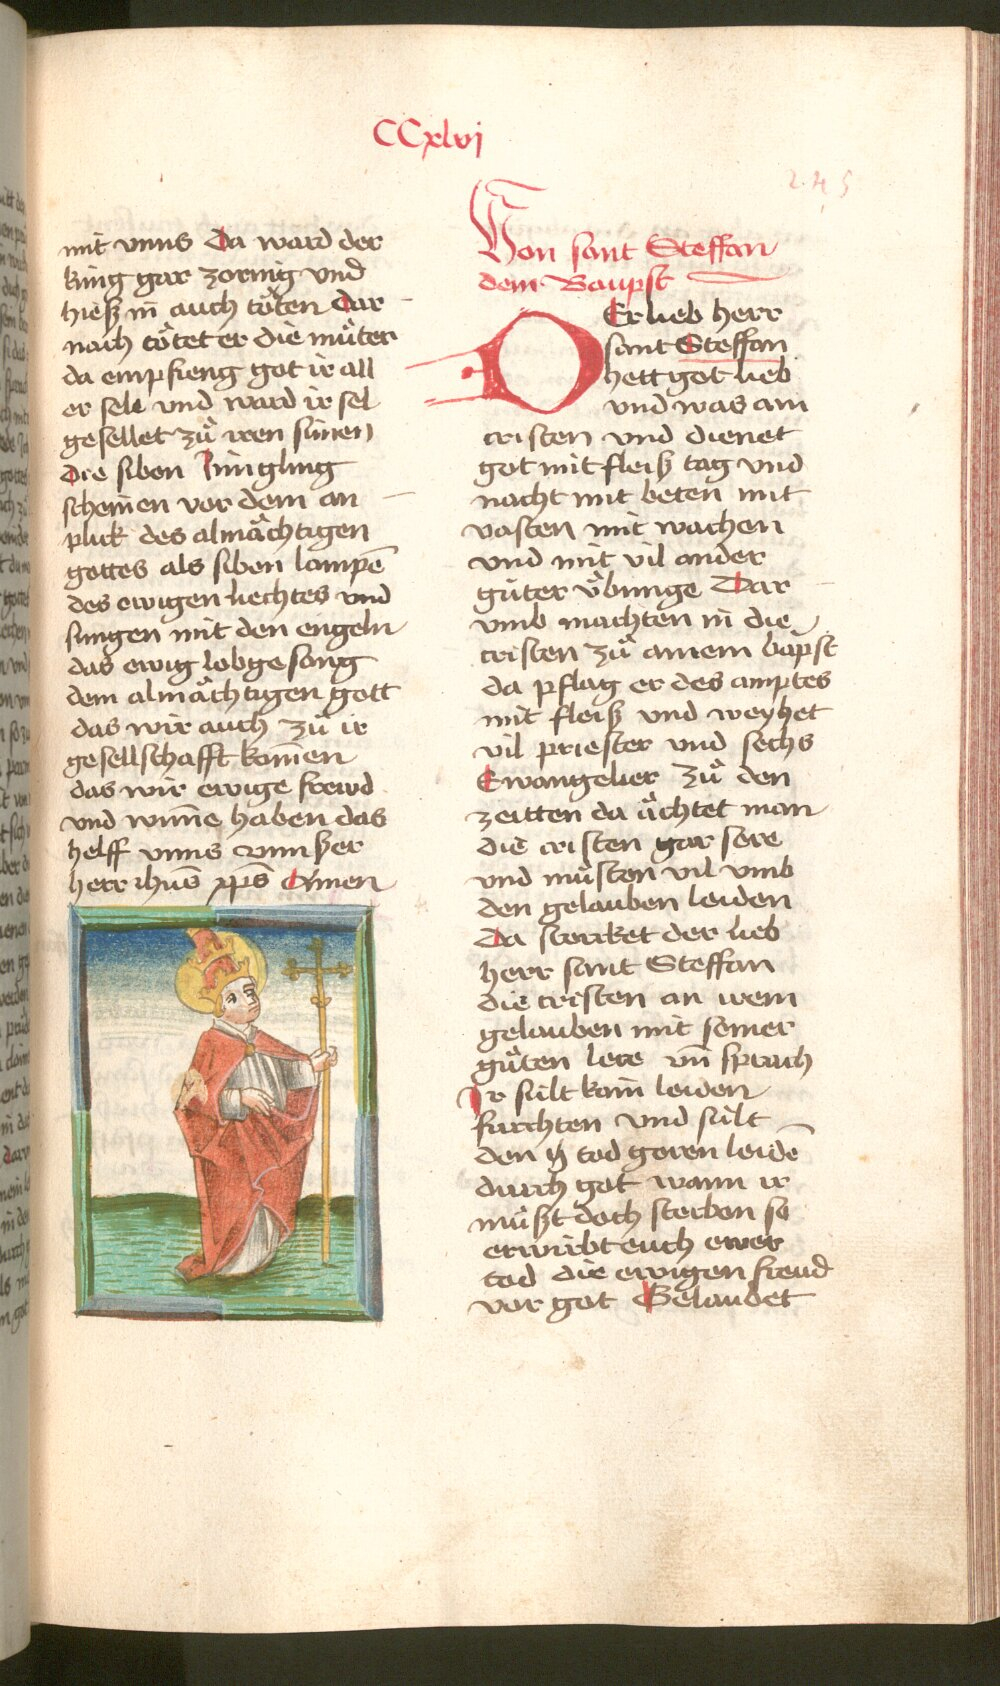 CCxlvj
245
mit vnns Da ward der
king gar zornig vnd
hieß in auch toͤten Dar
nach toͤtet er die muͦter
da empfieng got ir all
er sele vnd ward ir sel
gesellet zuͦ iren sünen
Die siben Jüngling
scheinen vor dem an
plick des almaͤchtigen
gottes als siben lampē
des ewigen liechtes vnd
sungen mit den engeln
das ewig lobgesang
dem almaͤchtigen gott
das wir auch zuͦ ir
gesellschafft kom̄en
das wir ewige frewd
vnd wun̄e haben das
helff vnns vnnßer
herr ihūs xp̄s Amen
Von sant Steffan
dem Baupst
DEr lieb herr
sant Steffan
hett got lieb
vnd was ain
cristen vnd dienet
got mit fleiß tag vnd
nacht mit beten mit
vasten mit wachen
vnd mit vil ander
guͦter uͤbunge Dar
vmb machten in die
cristen zuͦ ainem bapst
da pflag er des amptes
mit fleiß vnd weyhet
vil priester vnd sechs
Ewangelier zuͦ den
zeitten da aͤchtet man
die cristen gar sere
vnd muͦsten vil vmb
den gelauben leiden
Da storcket der lieb
herr sant Steffan
die cristen an irem
gelauben mit seiner
guͦten lere vn̄ sprach
Ir sült kain leiden
fürchten vnd sült
den tod geren leidē
durch got wann ir
muͦßt doch sterben so
erwirbt euch ewer
tod die ewigen freud
vor got Gelaubet